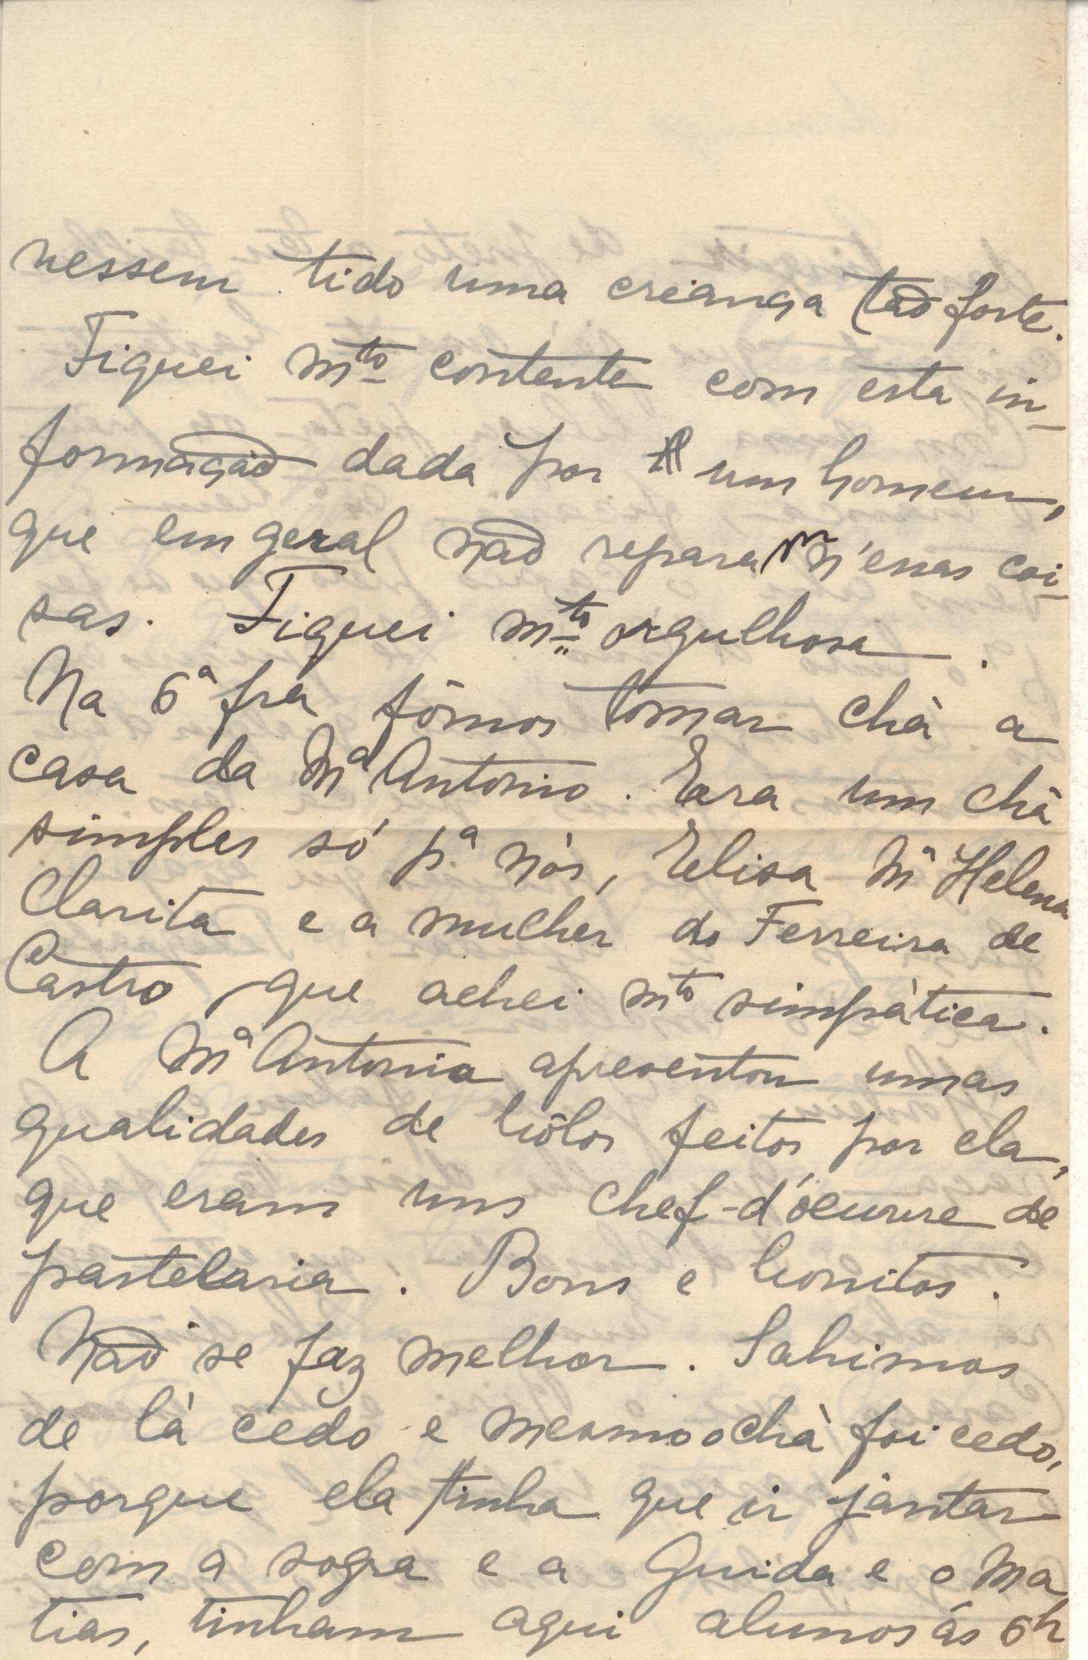 nessem tido uma creança tão forte.
Fiquei mto contente com esta in-
formação dada por um homem,
que em geral não reparam n'essas coi-
sas. Fiquei mto orgulhosa.
Na 6ª fra fômos tomar chá a
casa da Mª Antonio. Era um chá
simples só pª nós, Elisa Mª Helena
Clarita e a mulher do Ferreira de
Castro, que achei mto simpática.
A Mª Antonia apresentou umas
qualidades de bôlos feitos por ela,
que eram uns chef-d'oeuvre de
pastelaria. Bons e bonitos.
Não se faz melhor. Sahimos
de lá cedo e mesmo o chá foi cedo,
porque ela tinha que ir jantar
com a sogra e a Guida e o Ma
tias, tinham aqui alunos ás 6h